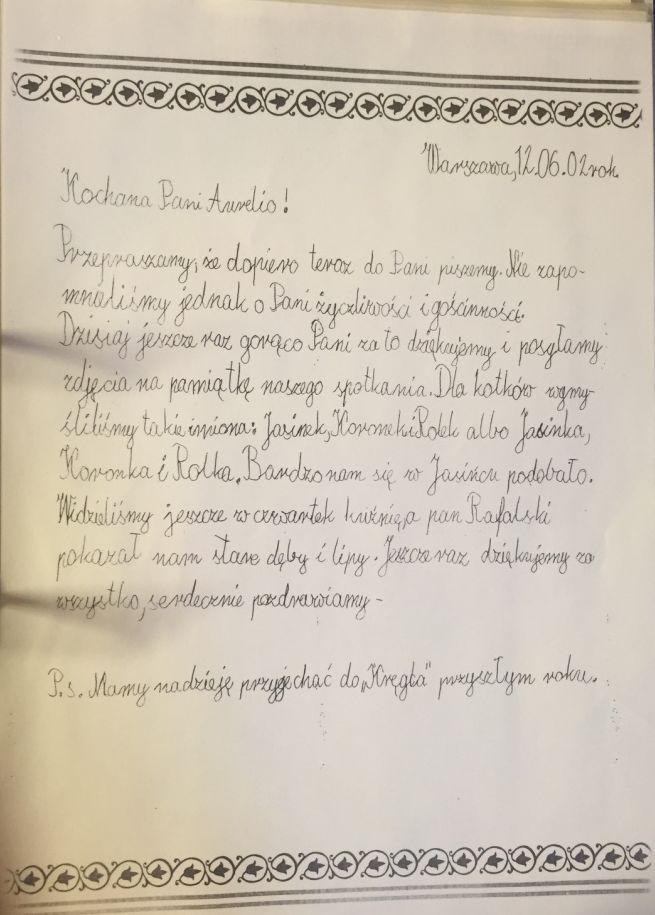 Warszawa, 12.06.02 rok.
Kochana Pani Aurelio!
Przepraszamy, że dopiero teraz do Pani piszemy. Nie zapo-
mnieliśmy jednak o Pani życzliwości i gościnności.
Dzisiaj jeszcze raz gorąco Pani za to dziękujemy i posyłamy
zdjęcia na pamiątkę naszego spotkania. Dla kotków wymy-
śliliśmy takie imiona: Jasinek, Koronek i Rolek albo Jasinka,
Koronka i Rolka. Bardzo nam się w Jasińcu podobało.
Widzieliśmy jeszcze w czwartek kuźnię, a pan Rafalski
pokazał nam stare dęby i lipy. Jeszcze raz dziękujemy za
wszystko, serdecznie pozdrawiamy -
P.s. Mamy nadzieję przyjechać do „Kręgla" przyszłym roku.